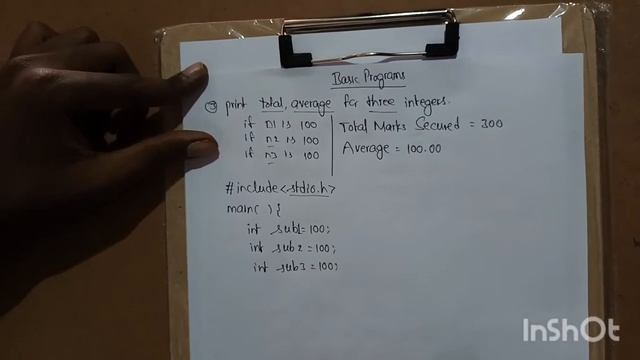 Basic Programs
③ print total, average for three integers.
if n1 is 100
if n2 is 100
if n3 is 100
Total Marks Secured = 300
Average = 100.00
#include<stdio.h>
main( ) {
int sub1=100;
int sub2=100;
int sub3=100;
InShOt